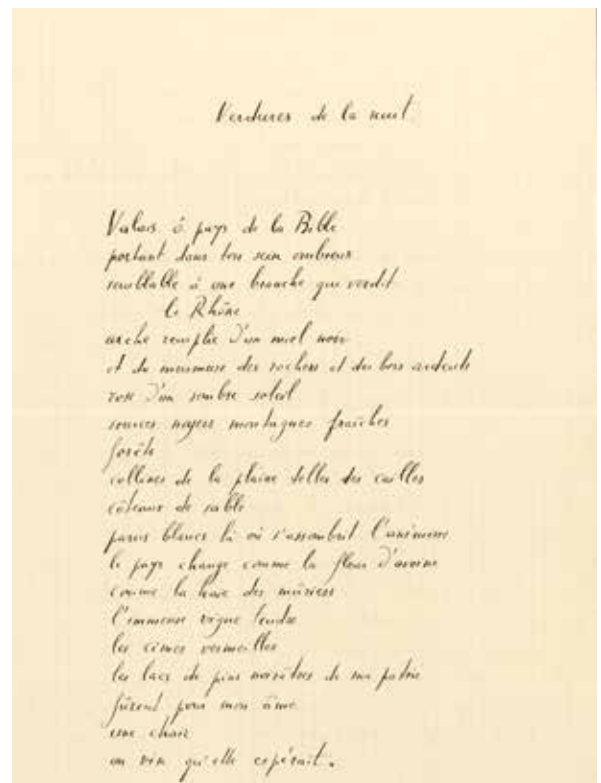 Verdures de la nuit
Valais ô pays de la Bible
portant dans ton sein ombreux
semblable à une branche qui verdit
le Rhône
arche remplie d'un miel noir
et du murmure des rochers et des bois ardents
rose d'un sombre soleil
sources noyers montagnes fraîches
forêts
collines de la plaine telles des cailles
côteaux de sable
parois blanches là où s'assombrit l'anémone
le pays change comme la fleur d'avoine
comme la haie des mûriers
l'immense vigne tendre
les cimes vermeilles
les lacs de pins noirâtres de ma patrie
fûrent pour mon âme
une chair
un vin qu'elle espérait.